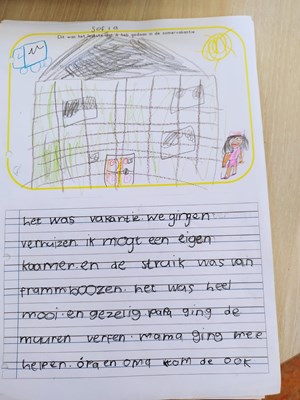 Sofia
Dit was het leukste dat ik heb gedaan in de zomervakantie
het was vakantie. we gingen
verhuizen. ik mogt een eigen
kaamer. en de struik was van
frammboozen. het was heel
mooi. en gezelig. papa ging de
muuren verfen. mama ging mee
helpen. opa en oma kom de ook